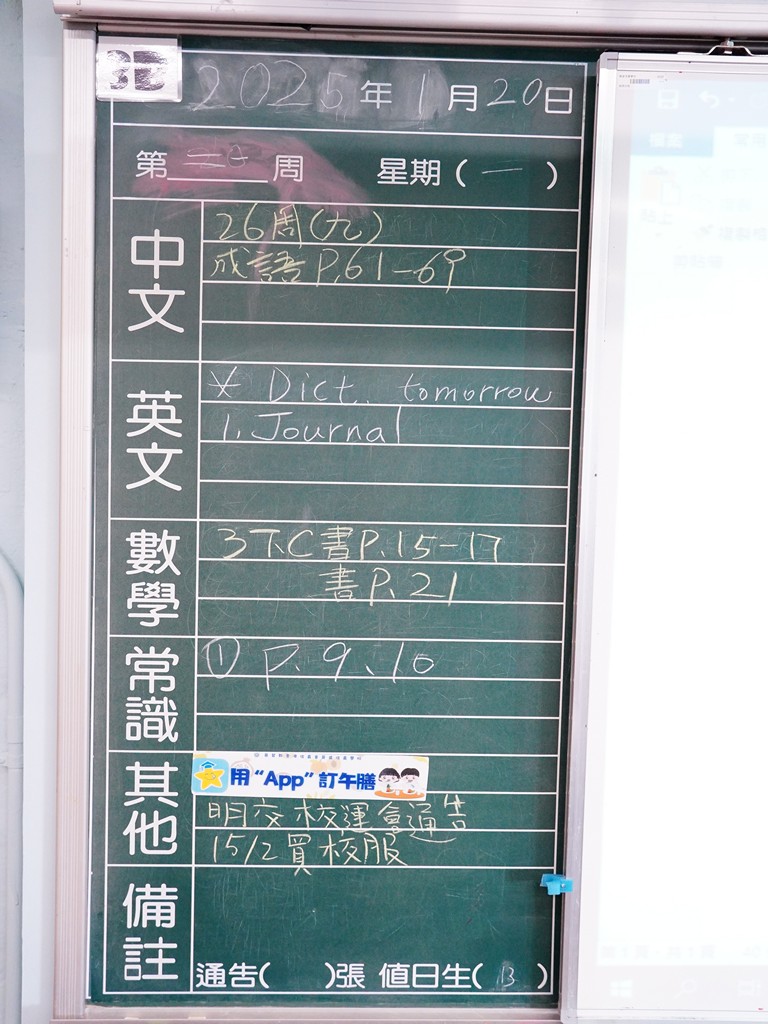 3D
2025年1月20日
第二十周 星期(一)
中文
26周(九)
成語P.61-69
英文
* Dict. tomorrow
1. Journal
數學
3下C書P.15-17
書P.21
常識
① P.9、10
其他
用“App”訂午膳
明交校運會通告
15/2買校服
備註
通告( )張 值日生(13)